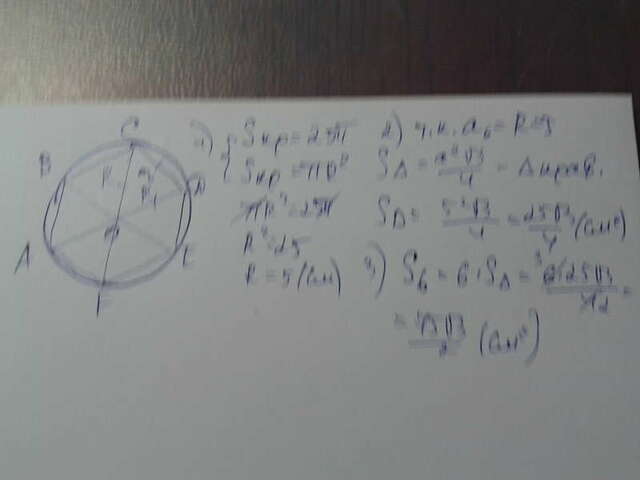 C
B
D
A
E
F
R
1) Sкр = 25π
Sкр = πR²
πR² = 25π
R² = 25
R = 5 (см)
2) т.к. a₆ = R = 5
S△ = a²√3/4 - △ прав.
S△ = 5²√3/4 = 25√3/4 (см²)
3) S₆ = 6 · S△ = 6·25√3/4 =
= √3/2 (см²)